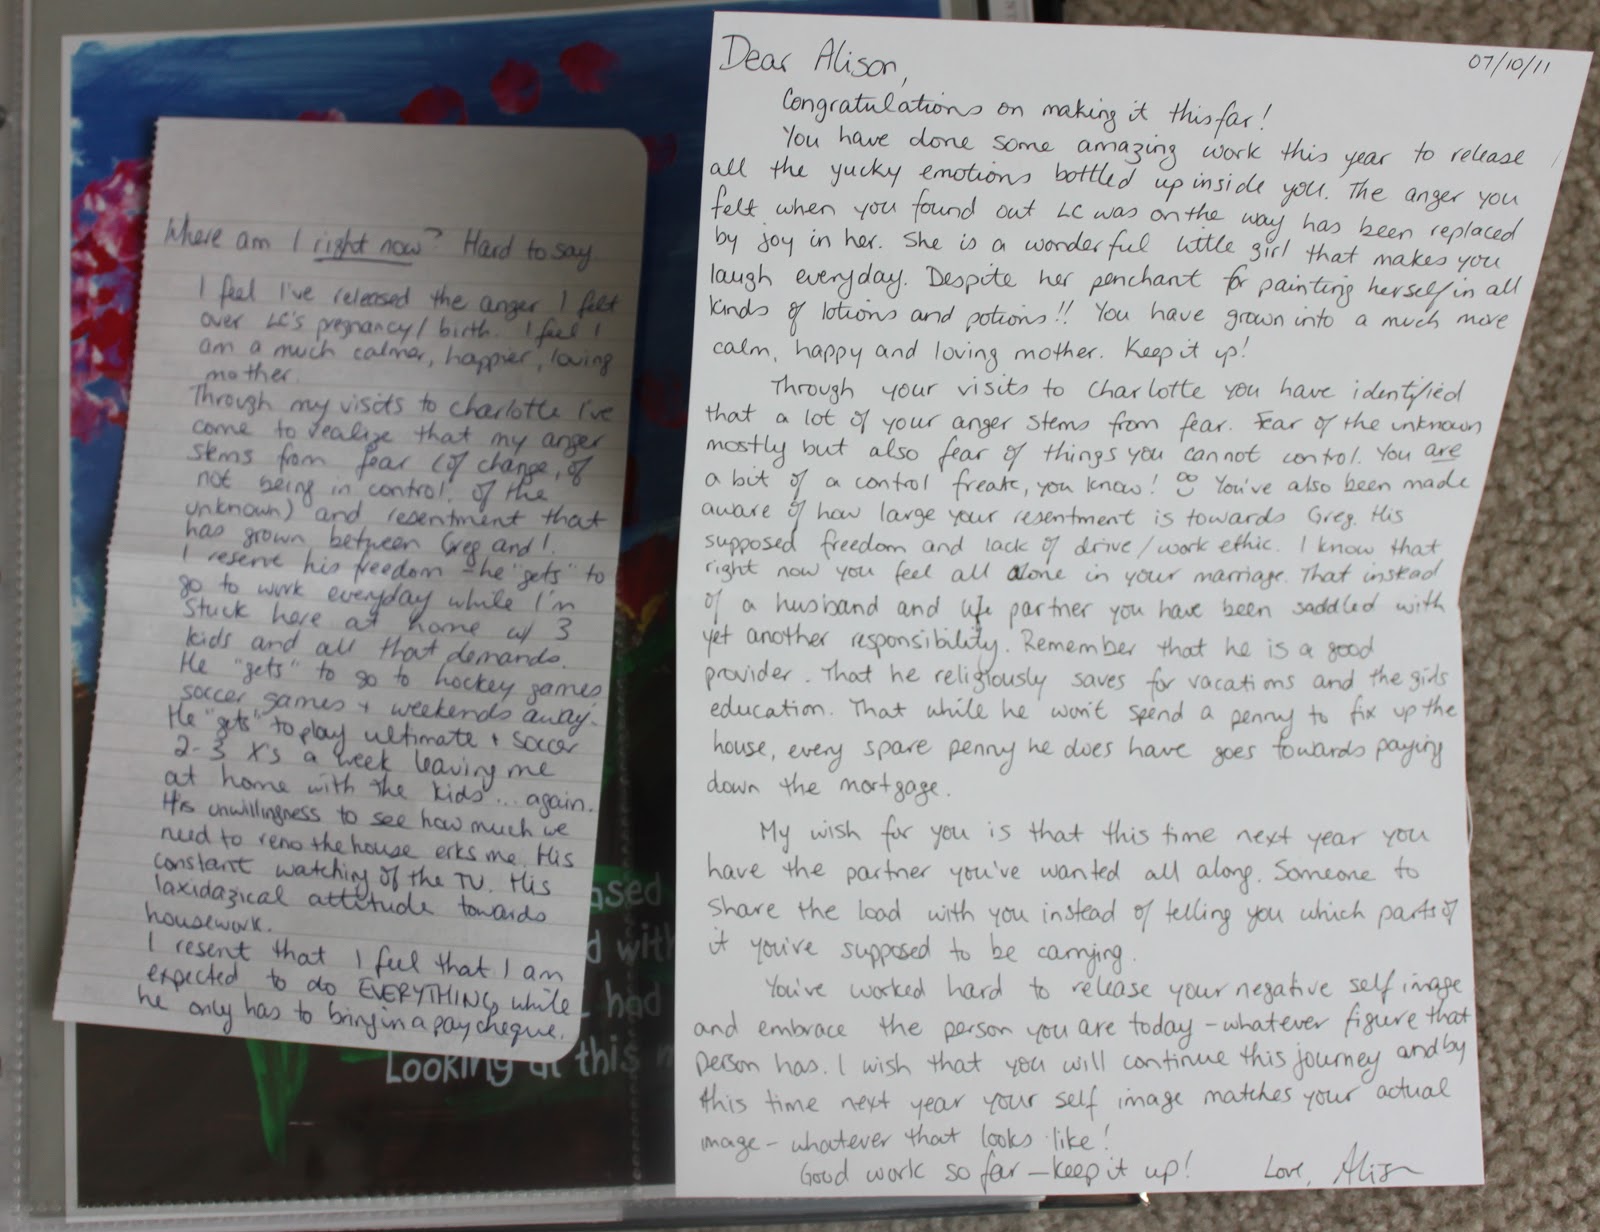 Where am I right now? Hard to say
I feel I've released the anger I felt
over LC's pregnancy/birth. I feel I
am a much calmer, happier, loving
mother.
Through my visits to Charlotte I've
come to realize that my anger
stems from fear (of change, of
not being in control, of the
unknown) and resentment that
has grown between Greg and I.
I resent his freedom - he "gets" to
go to work everyday while I'm
stuck here at home w/ 3
kids and all that demands.
He "gets" to go to hockey games
soccer games + weekends away.
He "gets" to play ultimate + soccer
2-3 X's a week leaving me
at home with the kids... again.
His unwillingness to see how much we
need to reno the house erks me. His
constant watching of the TV. His
laxidazical attitude towards
housework.
I resent that I feel that I am
expected to do EVERYTHING while
he only has to bring in a paycheque.
ased
d with
had
Looking at this m
07/10/11
Dear Alison,
Congratulations on making it this far!
You have done some amazing work this year to release
all the yucky emotions bottled up inside you. The anger you
felt when you found out LC was on the way has been replaced
by joy in her. She is a wonderful little girl that makes you
laugh everyday. Despite her penchant for painting herself in all
kinds of lotions and potions!! You have grown into a much more
calm, happy and loving mother. Keep it up!
Through your visits to Charlotte you have identified
that a lot of your anger stems from fear. Fear of the unknown
mostly but also fear of things you cannot control. You are
a bit of a control freak, you know! You've also been made
aware of how large your resentment is towards Greg. His
supposed freedom and lack of drive/work ethic. I know that
right now you feel all alone in your marriage. That instead
of a husband and life partner you have been saddled with
yet another responsibility. Remember that he is a good
provider. That he religiously saves for vacations and the girls
education. That while he won't spend a penny to fix up the
house, every spare penny he does have goes towards paying
down the mortgage.
My wish for you is that this time next year you
have the partner you've wanted all along. Someone to
share the load with you instead of telling you which parts of
it you're supposed to be carrying.
You've worked hard to release your negative self image
and embrace the person you are today - whatever figure that
person has. I wish that you will continue this journey and by
this time next year your self image matches your actual
image - whatever that looks like!
Good work so far - keep it up! Love, Alison